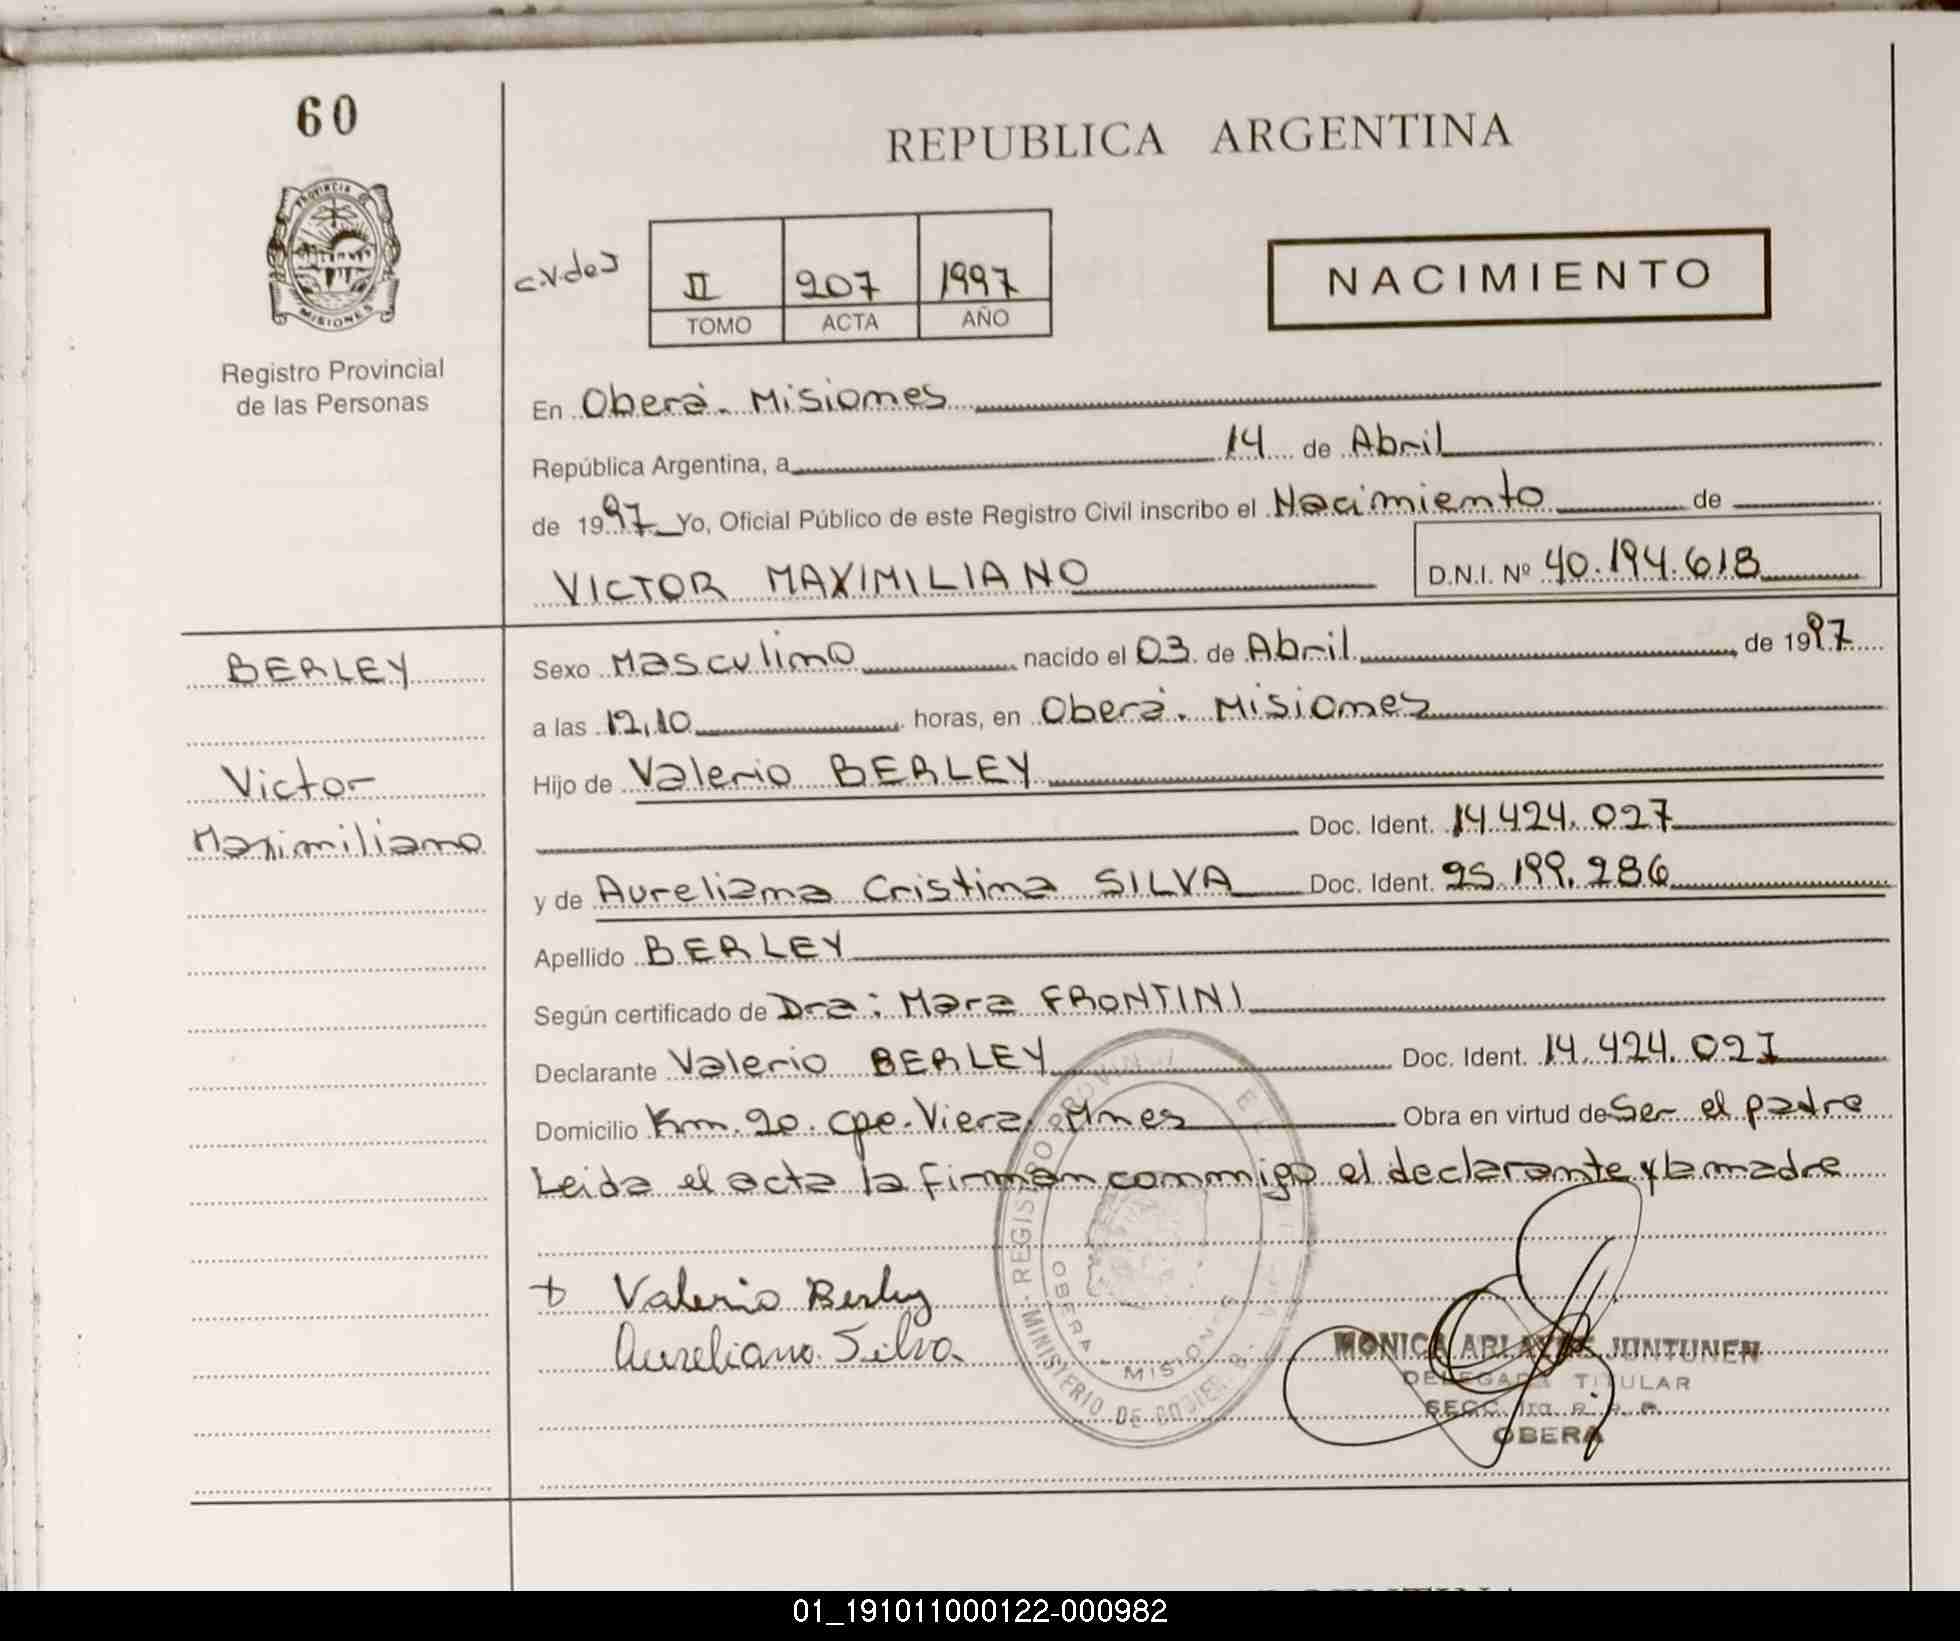 60
REPUBLICA ARGENTINA
PROVINCIA
MISIONES
Registro Provincial
de las Personas
c.v.de J
II 207 1997
TOMO ACTA AÑO
NACIMIENTO
En Oberá. Misiones
República Argentina, a 14 de Abril
de 1997 Yo, Oficial Público de este Registro Civil inscribo el Nacimiento de
VICTOR MAXIMILIANO D.N.I. Nº 40.194.618
BERLEY
Victor
Maximiliano
Sexo Masculino nacido el 03 de Abril de 1997
a las 12,10 horas, en Oberá. Misiones
Hijo de Valerio BERLEY
Doc. Ident. 14.424.027
y de Aureliana Cristina SILVA Doc. Ident. 25.199.286
Apellido BERLEY
Según certificado de Dra: Mara FRONTINI
Declarante Valerio BERLEY Doc. Ident. 14.424.027
Domicilio Km.20. cpo. Viera. Mnes Obra en virtud de Ser el padre
Leida el acta la firman conmigo el declarante y la madre
+ Valerio Berley
Aureliana Silva
REGISTRO PROVIN
MINISTERIO DE GOBIER
OBERA - MISIONES
MONICA JUNTUNEN
DELEGADA TITULAR
SECC. 1ra
OBERA
01_191011000122-000982